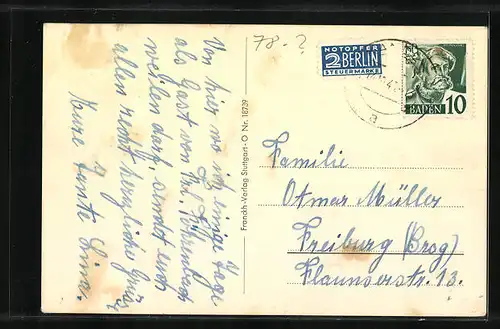 Von hier wo ich einige Tage
als Gast von Frl. Fürstenbach
weilen darf, sendet euch
allen recht herzliche Grüße
Eure Tante Lina.
78-?
NOTOPFER
2 BERLIN
STEUERMARKE
BADEN 10
a
Franckh-Verlag Stuttgart-O Nr. 18739
Familie
Otmar Müller
Freiburg (Brsg)
Flaunserstr. 13.